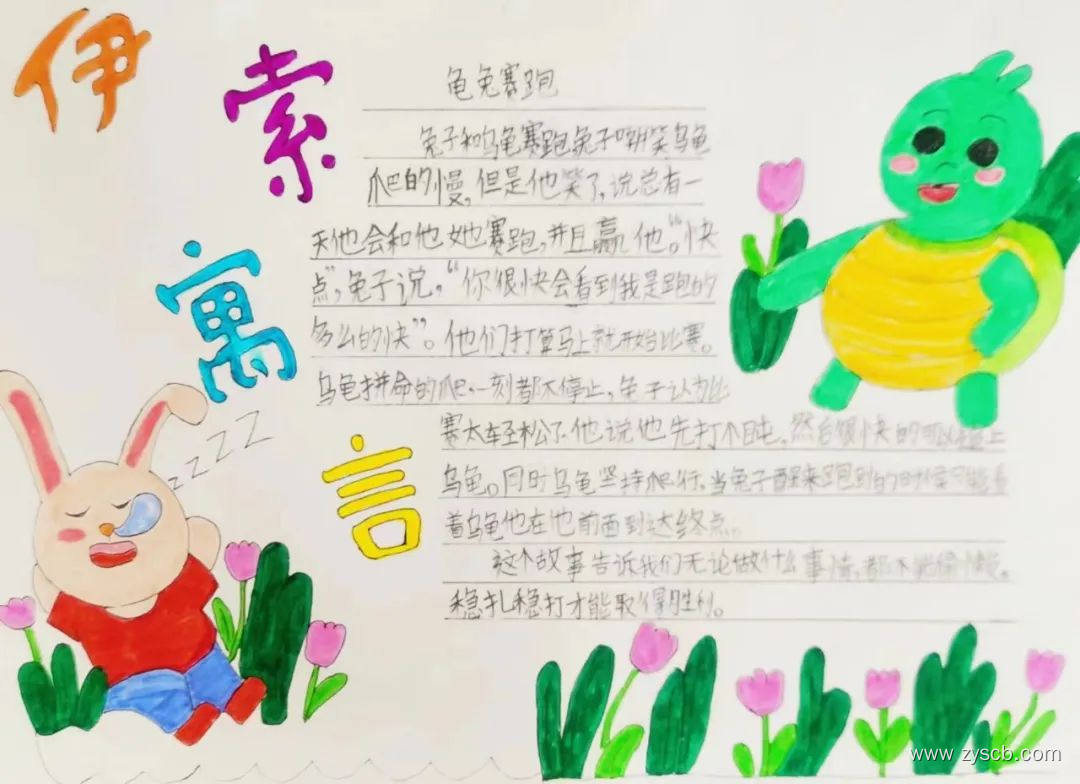 伊索寓言
龟兔赛跑
兔子和乌龟赛跑兔子嘲笑乌龟
爬的慢,但是他笑了,说总有一
天他会和他她赛跑,并且赢他。“快
点”,兔子说,“你很快会看到我是跑的
多么的快”。他们打算马上就开始比赛。
乌龟拼命的爬,一刻都不停止,兔子认为比
赛太轻松了.他说他先打个盹,然后很快的可以上
乌龟。同时乌龟坚持爬行,当兔子醒来跑到的时候只能看
着乌龟他在他前面到达终点。
这个故事告诉我们无论做什么事情,都不能偷懒。
稳扎稳打才能取得胜利。
zzzz
www.zyscb.com